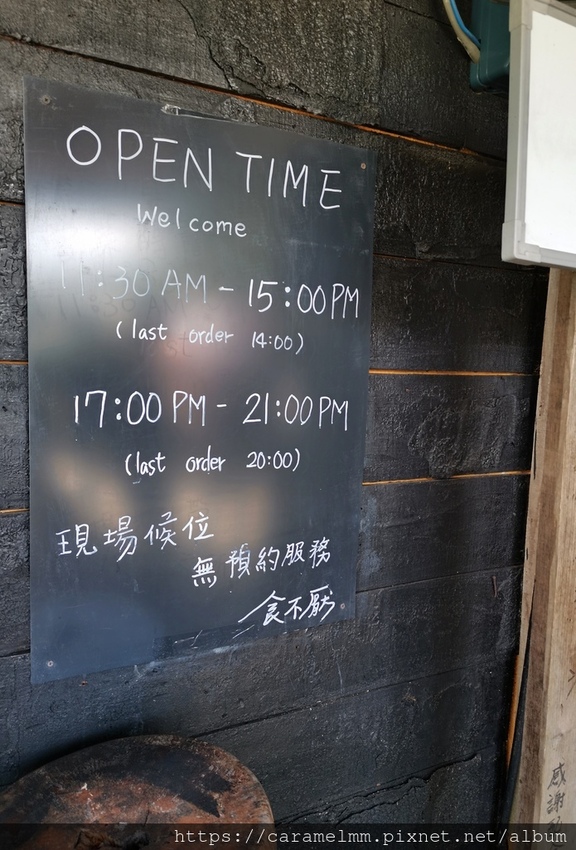 OPEN TIME
Welcome
11:30 AM - 15:00 PM
(last order 14:00)
17:00 PM - 21:00 PM
(last order 20:00)
現場候位
無預約服務
食不厭
感謝
https://caramelmm.pixnet.net/album